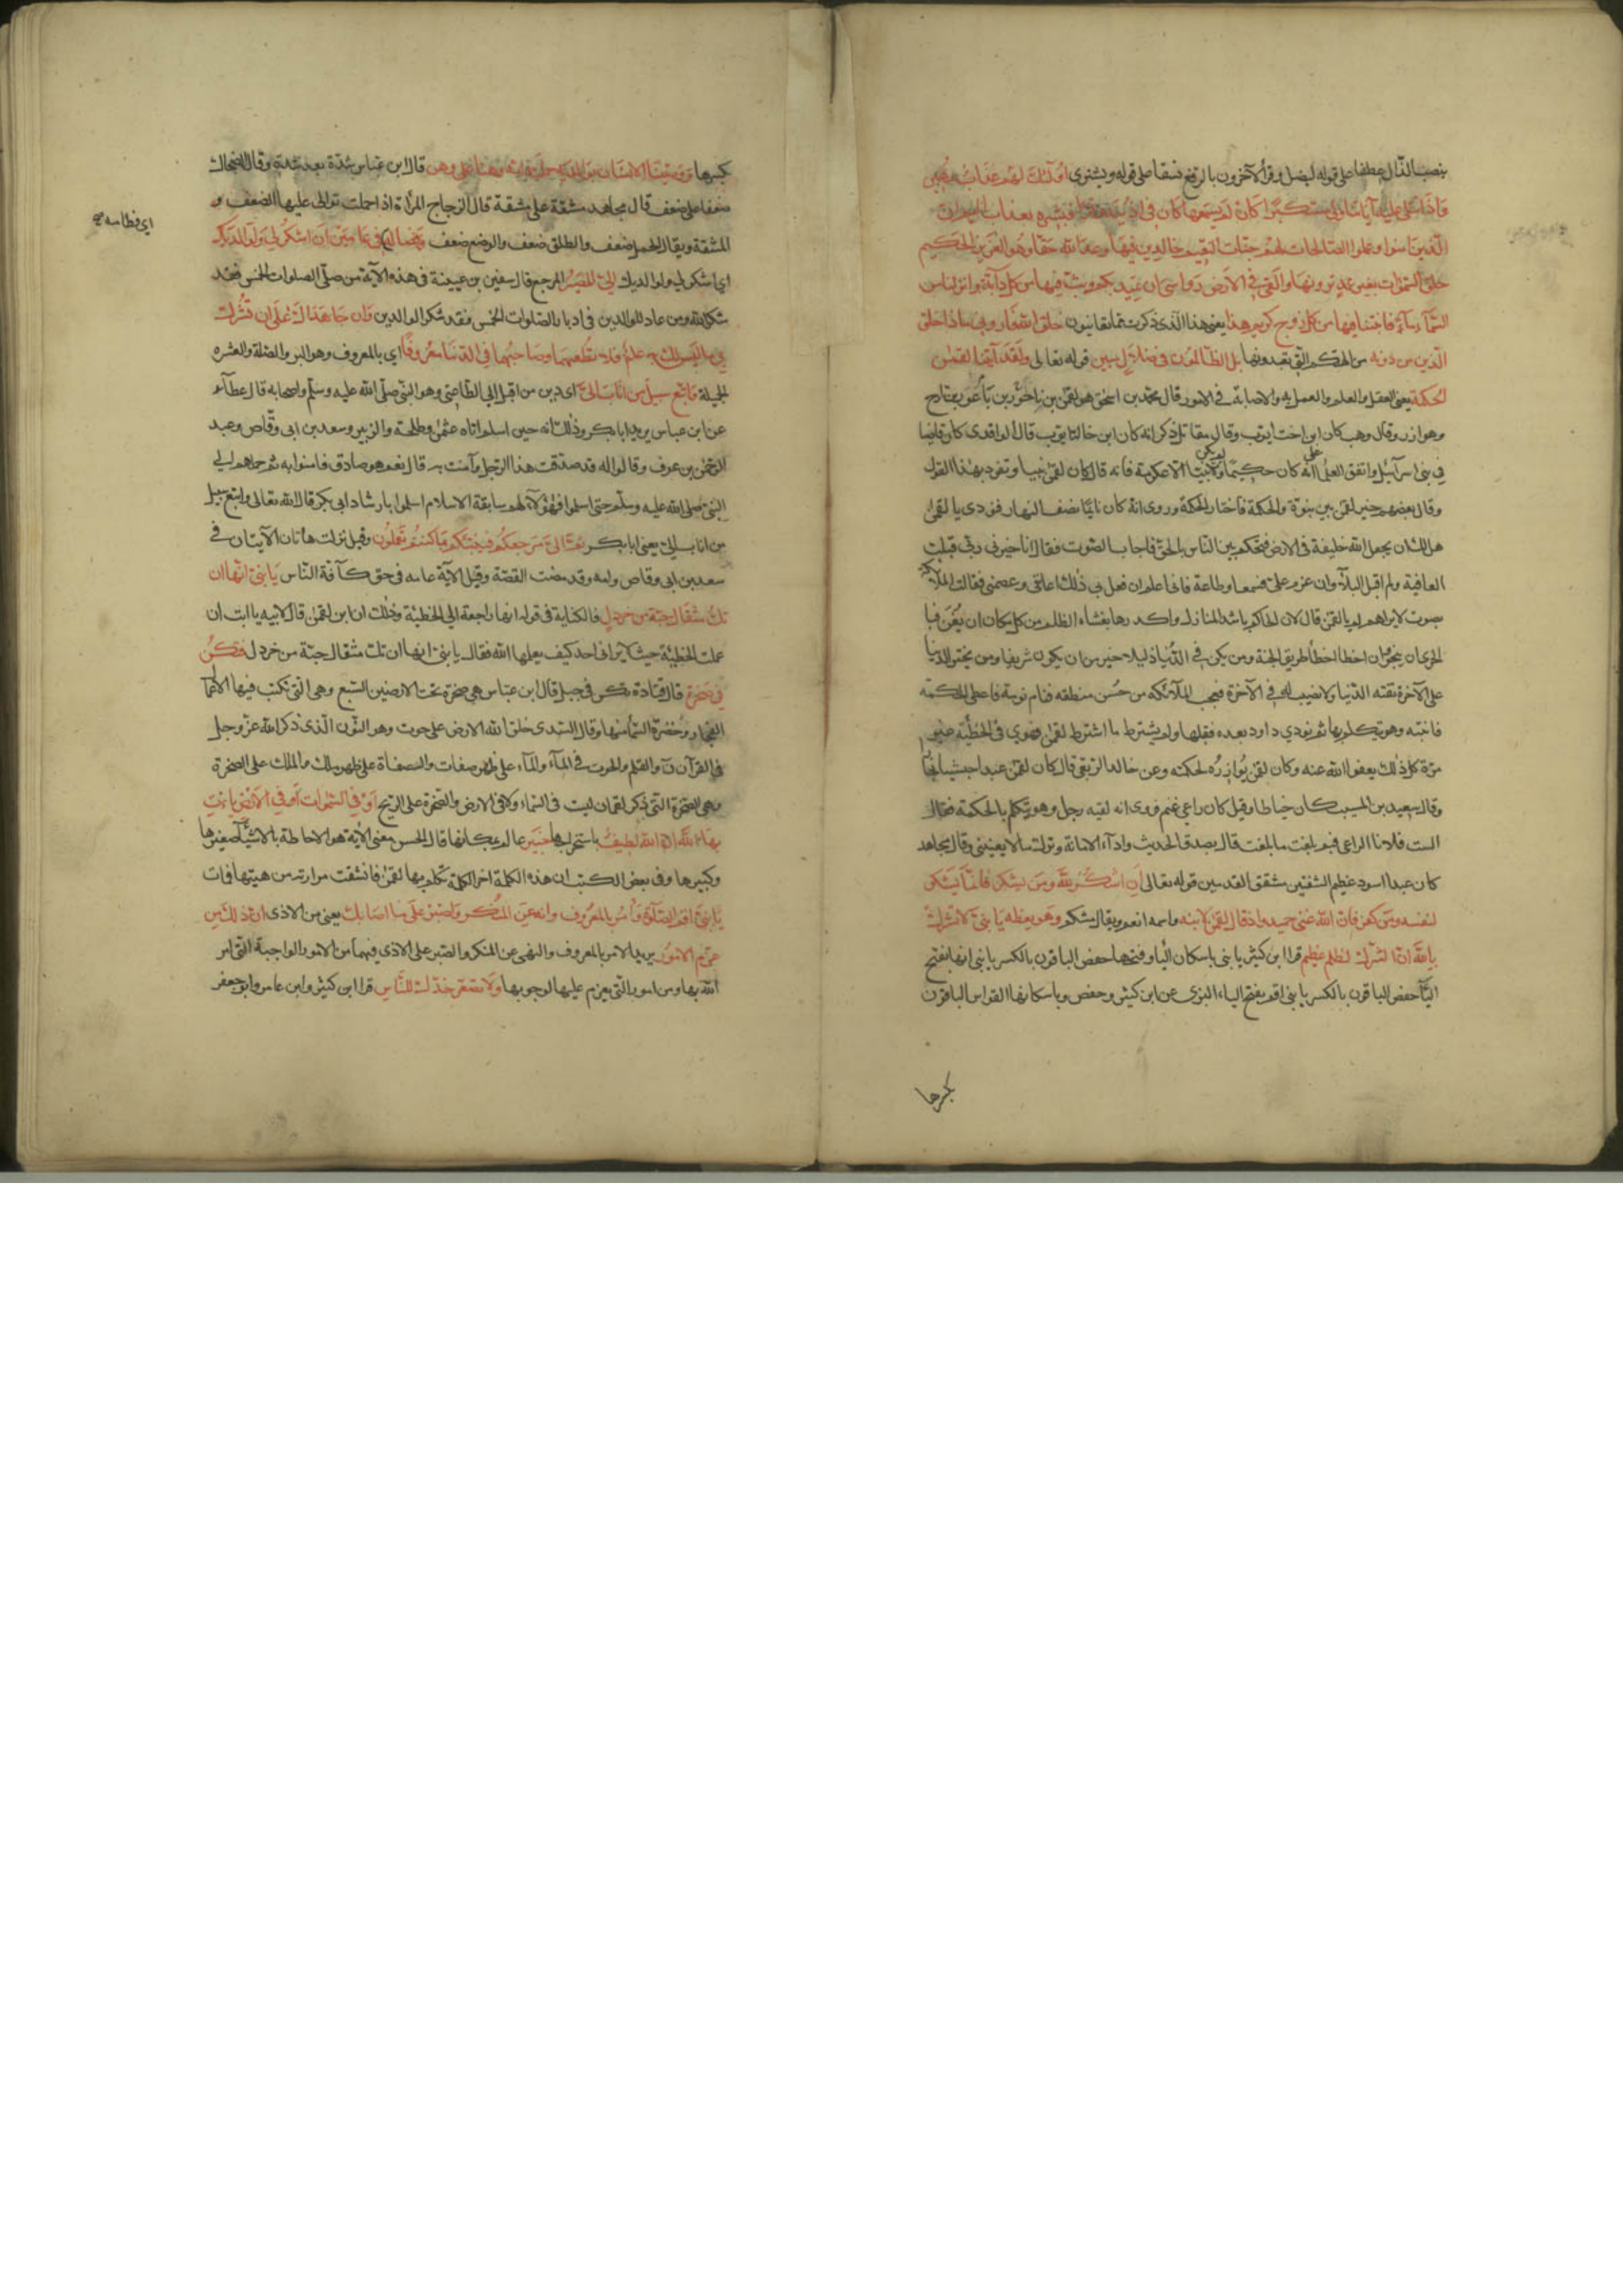 بنصب الذال عطفا على قوله ليضل وقرأ الآخرون بالرفع نسقا على قوله ويشترى اولئك لهم عذاب مهين
واذا تتلى عليه آياتنا ولى مستكبرا كان لم يسمعها كان فى اذنيه وقرا فبشره بعذاب اليم ان
الذين امنوا وعملوا الصالحات لهم جنات النعيم خالدين فيها وعد الله حقا وهو العزيز الحكيم
خلق السموات بغير عمد ترونها والقى فى الارض رواسى ان تميد بكم وبث فيها من كل دابة وانزلنا من
السماء ماء فانبتنا فيها من كل زوج كريم هذا يعنى هذا الذى ذكرت مما تعاينون خلق الله فارونى ماذا خلق
الذين من دونه من آلهتكم التى تعبدونها بل الظالمون فى ضلال مبين قوله تعالى ولقد آتينا لقمن
الحكمة يعنى العقل والعلم والعمل به والاصابة فى الامور قال محمد بن اسحق هو لقمن بن ناحور بن تارح
وهو ازر وقال وهب كان ابن اخت ايوب وقال مقاتل ذكر انه كان ابن خالة ايوب قال الواقدى كان قاضيا
فى بنى اسرآئيل واتفق العلما على انه كان حكيما ولم يكن نبيا الا عكرمة فانه قال كان لقمن نبيا وتفرد بهذا القول
وقال بعضهم خير لقمن بين نبوة والحكمة فاختار الحكمة وروى انه كان نائما نصف النهار فنودى يا لقمن
هل لك ان يجعل الله خليفة فى الارض فتحكم بين الناس بالحق فاجاب الصوت فقال ان خيرنى ربى قبلت
العافية ولم اقبل البلآء وان عزم على فسمعا وطاعة فانى اعلم ان فعل بى ذلك اعاننى وعصمنى فقالت الملآئكة
بصوت لا يراهم لم يا لقمن قال لان الحاكم باشد المنازل واكدرها يغشاه الظلم من كل مكان ان يعن فبا
لحرى ان ينجو وان اخطا اخطأ طريق الجنة ومن يكن فى الدنيا ذليلا خير من ان يكون شريفا ومن يختر الدنيا
على الآخرة تفته الدنيا ولا نصيب له فى الآخرة فعجب الملآئكة من حسن منطقه فنام نومة فاعطى الحكمة
فانتبه وهو يتكلم بها ثم نودى داود بعده فقبلها ولم يشترط ما اشترط لقمن فهوى فى الخطيئة غير
مرة كل ذلك يعفو الله عنه وكان لقمن يوازره لحكمته وعن خالد الربعى قال كان لقمن عبدا حبشيا نجارا
وقال سعيد بن المسيب كان خياطا وقيل كان راعى غنم فروى انه لقيه رجل وهو يتكلم بالحكمة فقال
الست فلانا الراعى فبم بلغت ما بلغت قال بصدق الحديث وادآء الامانة وترك ما لا يعنينى وقال مجاهد
كان عبدا اسود عظيم الشفتين مشقق القدمين قوله تعالى ان اشكر لله ومن يشكر فانما يشكر
لنفسه ومن كفر فان الله غنى حميد واذ قال لقمن لابنه واسمه انعم ويقال مشكم وهو يعظه يا بنى لا تشرك
بالله ان الشرك لظلم عظيم قرا ابن كثير يا بنى باسكان اليا وفتحها حفص الباقون بالكسر يا بنى انها بفتح
اليآ حفص الباقون بالكسر يا بنى اقم بفتح الياء البزى عن ابن كثير وحفص وباسكانها القواس الباقون
بكسرها
بكسرها ووصينا الانسان بوالديه حملته امه وهنا على وهن قال ابن عباس شدة بعد شدة وقال الضحاك
ضعفا على ضعف قال مجاهد مشقة على مشقة قال الزجاج المرأة اذا حملت توالى عليها الضعف و
المشقة ويقال الحمل ضعف والطلق ضعف والوضع ضعف وفصاله فى عامين ان اشكر لى ولوالديك
اى فطامه
اى اشكر لى ولوالديك الى المصير المرجع قال سفين بن عيينة فى هذه الآية من صلى الصلوات الخمس فقد
شكر الله ومن دعا للوالدين فى ادبار الصلوات الخمس فقد شكر الوالدين وان جاهداك على ان تشرك
بى ما ليس لك به علم فلا تطعهما وصاحبهما فى الدنيا معروفا اى بالمعروف وهو البر والصلة والعشرة
الجميلة واتبع سبيل من اناب الى اى دين من اقبل الى طاعتى وهو النبى صلى الله عليه وسلم واصحابه قال عطآء
عن ابن عباس يريد ابا بكر وذلك انه حين اسلم اتاه عثمن وطلحة والزبير وسعد بن ابى وقاص وعبد
الرحمن بن عوف وقالوا له قد صدقت هذا الرجل وآمنت به قال نعم هو صادق فامنوا به ثم حملهم الى
النبى صلى الله عليه وسلم حتى اسلموا فهؤلآء لهم سابقة الاسلام اسلموا بارشاد ابى بكر قال الله تعالى واتبع سبيل
من اناب الى يعنى ابا بكر ثم الى مرجعكم فانبئكم بما كنتم تعملون وقيل نزلت هاتان الآيتان فى
سعد بن ابى وقاص وامه وقد مضت القصة وقيل الآية عامه فى حق كآفة الناس يا بنى انها ان
تك مثقال حبة من خردل فالكناية فى قوله انها راجعة الى الخطيئة وذلك ان ابن لقمن قال لابيه يا ابت ان
عملت الخطيئة حيث لا يرانى احد كيف يعلمها الله فقال يا بنى انها ان تك مثقال حبة من خردل فتكن
فى صخرة قال قتادة تكن فى جبل قال ابن عباس هى صخرة تحت الارضين السبع وهى التى تكتب فيها الاعمال
الفجار وخضرة السمآء منها وقال السدى خلق الله الارض على حوت وهو النون الذى ذكر الله عز وجل
فى القرآن ن والقلم والحوت فى المآء والمآء على ظهر صفات والصفاة على ظهر ملك والملك على الصخرة
وهى الصخرة التى ذكر لقمان ليست فى السماء ولا فى الارض والصخرة على الريح او فى السموات او فى الارض يات
بها الله ان الله لطيف باستخراجها خبير عالم بمكانها قال الحسن معنى الآية هو الاحاطة بالاشيآء صغيرها
وكبيرها وفى بعض الكتب ان هذه الكلمة اخر الكلمة تكلم بها لقمن فانشقت مرارته من هيبتها فمات
يا بنى اقم الصلوة وأمر بالمعروف وانه عن المنكر واصبر على ما اصابك يعنى من الاذى ان ذلك من
عزم الامور يريد الامر بالمعروف والنهى عن المنكر والصبر على الاذى فيهما من الامور الواجبة التى امر
الله بها ومن امور التى يعزم عليها لوجوبها ولا تصعر خدك للناس قرا ابن كثير وابن عامر وابو جعفر